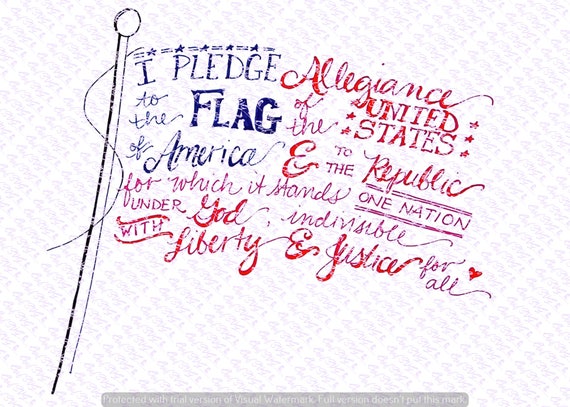 I PLEDGE Allegiance
to the FLAG of the UNITED STATES
of America & TO THE Republic
for which it stands ONE NATION
UNDER God, indivisible
WITH Liberty & Justice for all
Protected with trial version of Visual Watermark. Full version doesn't put this mark.